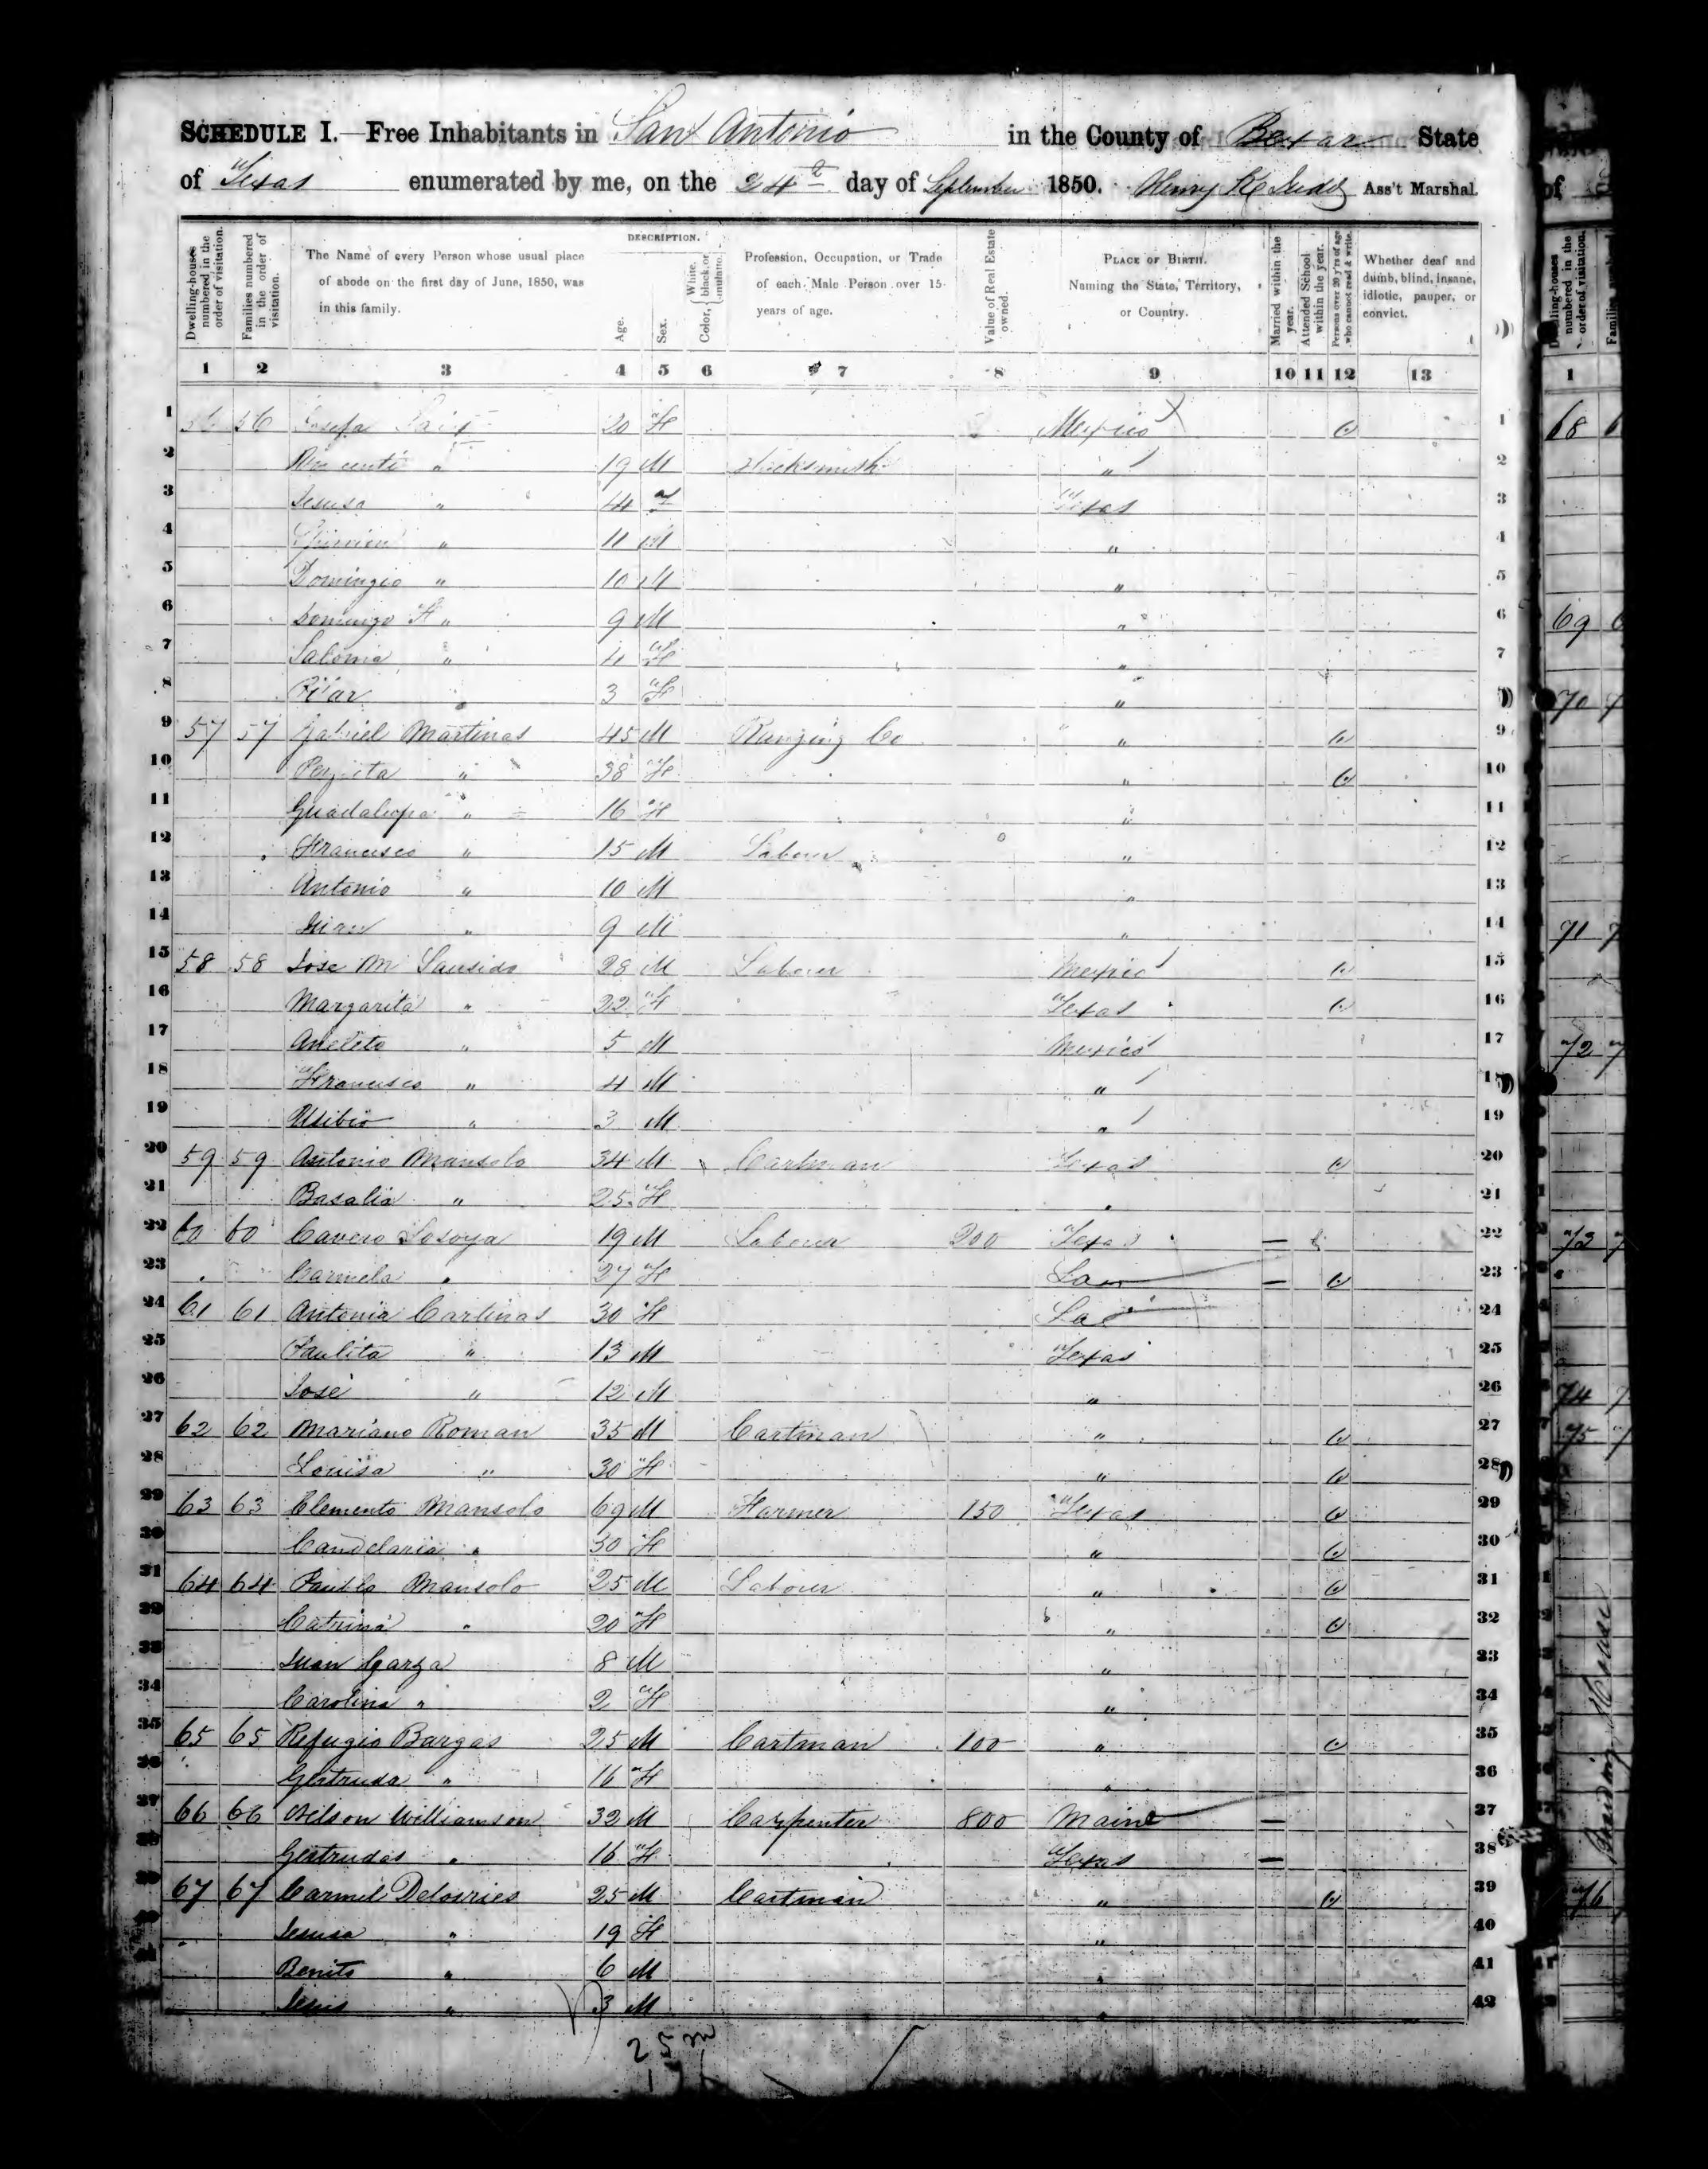 SCHEDULE I.—Free Inhabitants in San Antonio in the County of Bexar State
of Texas enumerated by me, on the 24th day of September 1850. Henry K Judd Ass't Marshal.
Dwelling-houses numbered in the order of visitation.
Families numbered in the order of visitation.
The Name of every Person whose usual place of abode on the first day of June, 1850, was in this family.
DESCRIPTION.
Age.
Sex.
Color, { White, black, or mulatto.
Profession, Occupation, or Trade of each Male Person over 15 years of age.
Value of Real Estate owned.
PLACE OF BIRTH. Naming the State, Territory, or Country.
Married within the year.
Attended School within the year.
Persons over 20 y'rs of age who cannot read & write.
Whether deaf and dumb, blind, insane, idiotic, pauper, or convict.
1 2 3 4 5 6 7 8 9 10 11 12 13
1 56 56 Josefa 20 F Mexico 1
2 " 19 M " 2
3 Jesusa " 4 F Texas 3
4 " 11 M " 4
5 Domingio " 10 M " 5
6 Domingo F " 9 M " 6
7 Salomia " 4 F " 7
8 Pilar " 3 F " 8
9 57 57 Gabriel Martinas 45 M Ranging Co " 9
10 " 38 F " 10
11 Guadalupa " 16 F " 11
12 Francisco " 15 M Labour " 12
13 Antonio " 10 M " 13
14 Juan " 9 M " 14
15 58 58 Jose M Sausido 28 M Labour Mexico 15
16 Margarita " 22 F Texas 16
17 Aneleto " 5 M Mexico 17
18 Francisco " 4 M " 18
19 Usibio " 3 M " 19
20 59 59 Antonio Mansolo 34 M Cartman Texas 20
21 Basalia " 25 F " 21
22 60 60 Cavero Losoya 19 M Labour 200 Texas 22
23 Carmela " 27 F La 23
24 61 61 Antonia Cartinas 30 F La 24
25 Paulita " 13 M Texas 25
26 Jose " 12 M " 26
27 62 62 Mariano Roman 35 M Cartman " 27
28 Louisa " 30 F " 28
29 63 63 Clemento Mansolo 69 M Farmer 150 Texas 29
30 Candelaria " 50 F " 30
31 64 64 Paublo Mansolo 25 M Labour " 31
32 Catrina " 20 F " 32
33 Juan Garza 8 M " 33
34 Carolina " 2 F " 34
35 65 65 Refugio Bargas 25 M Cartman 100 " 35
36 Gertruda " 16 F " 36
37 66 66 Nelson Williamson 32 M Carpenter 800 Maine 37
38 Gertrudas " 16 F Texas 38
39 67 67 Carmil Delosries 25 M Cartman " 39
40 Jesusa " 19 F " 40
41 Benito " 6 M " 41
42 Jesus " 3 M " 42
of
Dwelling-houses numbered in the order of visitation.
1
68
69
70
71
72
73
74
75
76